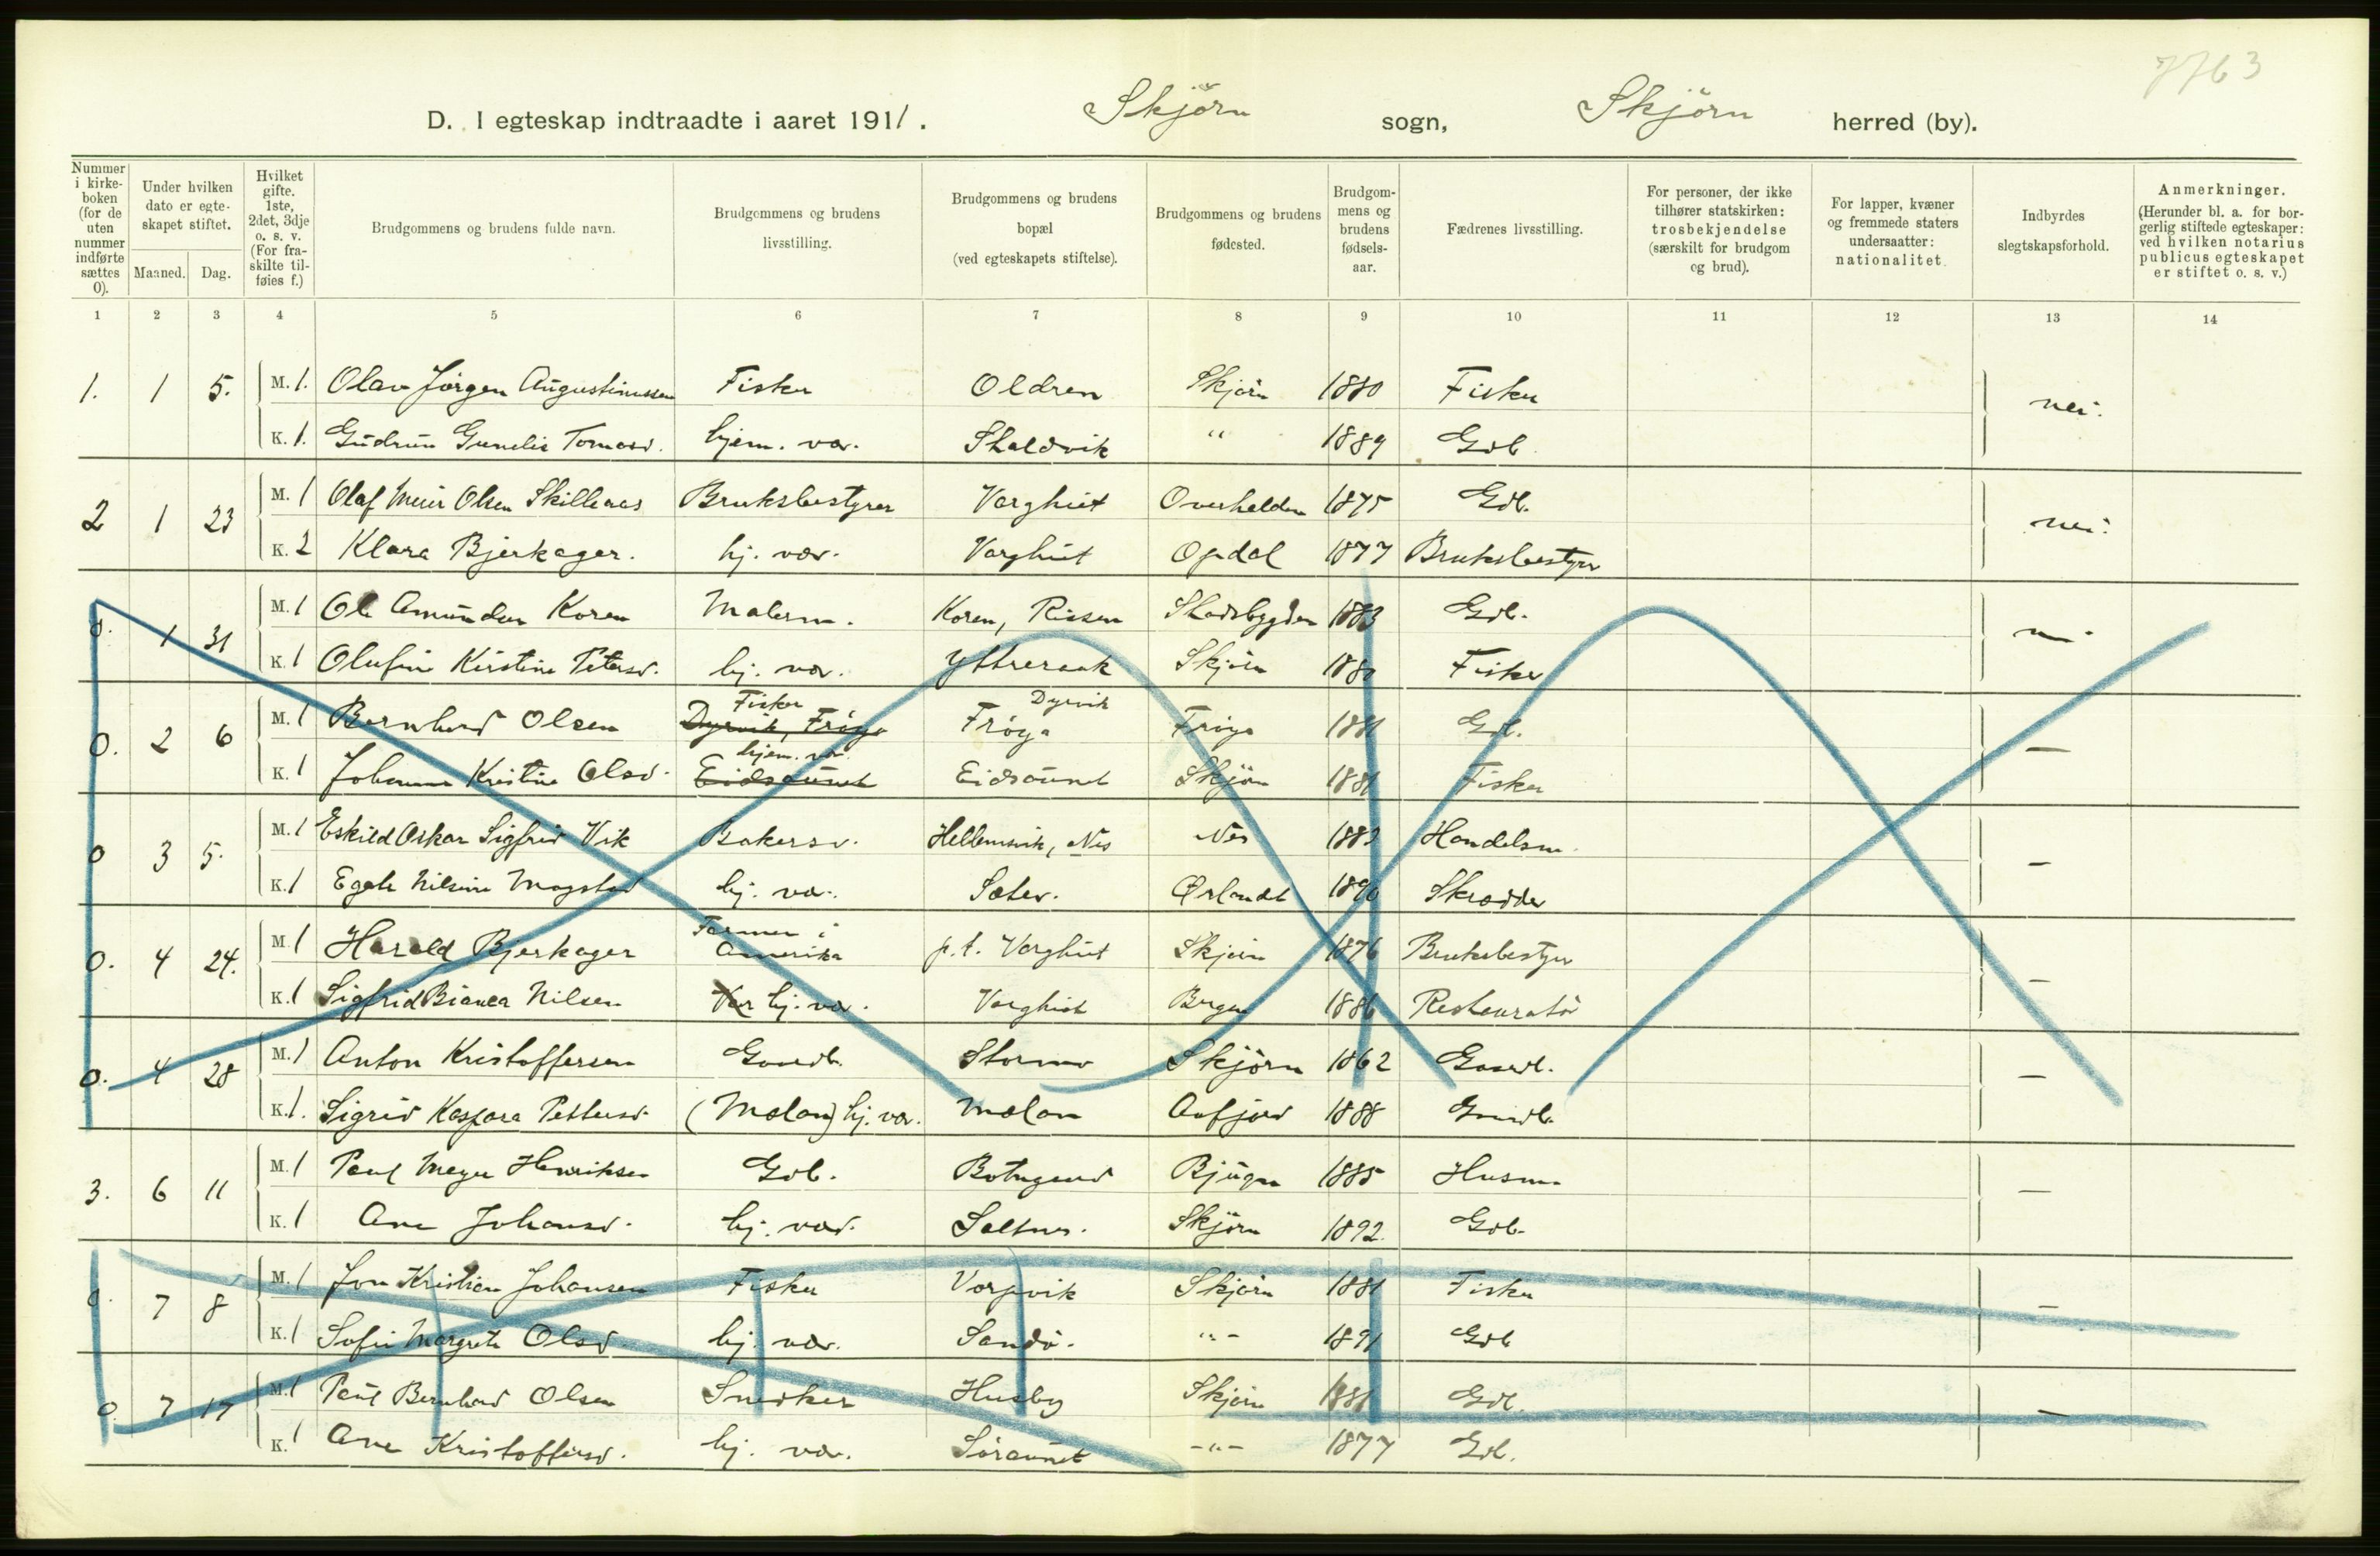 7763
D. I egteskap indtraadte i aaret 1911. Skjörn sogn, Skjörn herred (by).
Nummer i kirke-boken (for de uten nummer indførte sættes 0). Under hvilken dato er egte-skapet stiftet. Maaned. Dag. Hvilket gifte. 1ste, 2det, 3dje o. s. v. (For fra-skilte til-føies f.) Brudgommens og brudens fulde navn. Brudgommens og brudens livsstilling. Brudgommens og brudens bopæl (ved egteskapets stiftelse). Brudgommens og brudens fødested. Brudgom-mens og brudens fødsels-aar. Fædrenes livsstilling. For personer, der ikke tilhører statskirken: trosbekjendelse (særskilt for brudgom og brud). For lapper, kvæner og fremmede staters undersaatter: nationalitet. Indbyrdes slegtskapsforhold. Anmerkninger. (Herunder bl. a. for bor-gerlig stiftede egteskaper: ved hvilken notarius publicus egteskapet er stiftet o. s. v.)
1 2 3 4 5 6 7 8 9 10 11 12 13 14
1. 1 5. M. 1. Olav Jörgen Augustinussen Fisker Oldren Skjörn 1880 Fisker nei.
K. 1. Gudrun Gunelie Tomasd. hjem. vær. Skaldvik " 1889 Gdb
2 1 23 M. 1 Olaf Meier Olsen Skilleaas Bruksbestyrer Varghiet Overhalden 1875 Gdb. nei.
K. 2 Klara Bjerkager. hj. vær. Varghiet Opdal 1877 Bruksbestyrer
0. 1 31 M. 1 Ole Amundsen Koren Malerm. Koren, Rissen Stadsbygden 1883 Gdb.
K. 1 Olufine Kirstine Petersd. hj. vær. Yttreraak Skjörn 1880 Fisker
0. 2 6 M. 1 Bernhard Olsen Fisker Dyrvik, Fröya Fröya Dyrvik Fröya 1881 Gdb. —
K. 1 Johanna Kristine Olsd. hjem. vær Eidsaunet Eidsaunet Skjörn 1881 Fisker
0 3 5. M. 1 Eskild Oskar Sigfrid Vik Bakersv. Hellemsvik, Nes Nes 1883 Handelsm. —
K. 1 Nilsine Magstad hj. vær. Sæter. Ørlandet 1890 Skrædder
0. 4 24. M. 1 Harald Bjerkager Farmer i Amerika p.t. Varghiet Skjörn 1876 Bruksbestyrer —
K. 1 Sigfrid Bianca Nilsen hj. vær. Varghiet Bergen 1886 Restauratör
0. 4 28 M. 1 Anton Kristoffersen Gaardb. Stormo Skjörn 1862 Gaardb. —
K. 1. Sigrid Kaspara Pettersd. (Mælan) hj. vær. Mælan Aafjord 1888 Gaardb.
3. 6 11 M. 1 Paul Meyer Henriksen Gdb. Botngaard Bjugn 1885 Husm. —
K. 1 Ane Johansd. hj. vær. Saltnes. Skjörn 1892. Gdb.
0. 7 8 M. 1 Jon Kristian Johansen Fisker Vorpvik Skjörn 1881 Fisker —
K. 1 Sofie Margrete Olsd. hj. vær. Sandö. -"- 1891 Gdb
0. 7 17 M. 1 Paul Bernhard Olsen Snedker Husby Skjörn 1881 Gdb. —
K. 1 Ane Kristoffersd. hj. vær. Söraunet -"- 1877 Gdb.